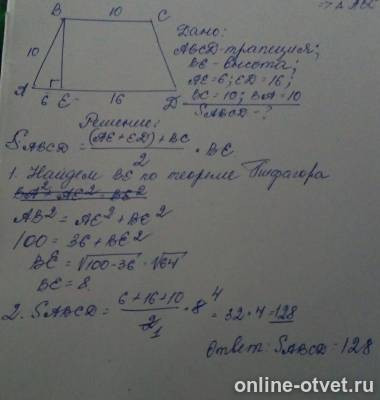 ⇒ △ ABC
B 10 C
10
A 6 E 16 D
Дано:
ABCD-трапеция;
BE-высота;
AE=6; ED=16;
BC=10; BA=10
SABCD-?
Решение:
SABCD = (AE+ED)+BC / 2 · BE
1. Найдем BE по теореме Пифагора
BA² + AE² = BE²
AB² = AE² + BE²
100 = 36 + BE²
BE = √100-36 = √64
BE = 8
2. SABCD = 6+16+10 / 2 1 · 8 4 = 32·4=128
Ответ: SABCD=128
online-otvet.ru